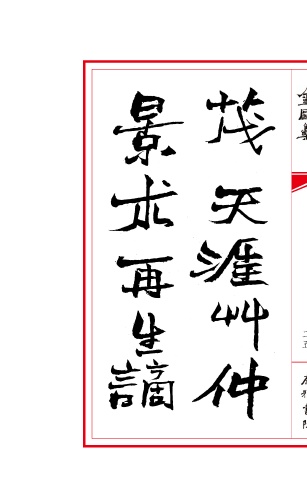 茂天涯艸仲
景求再生謫